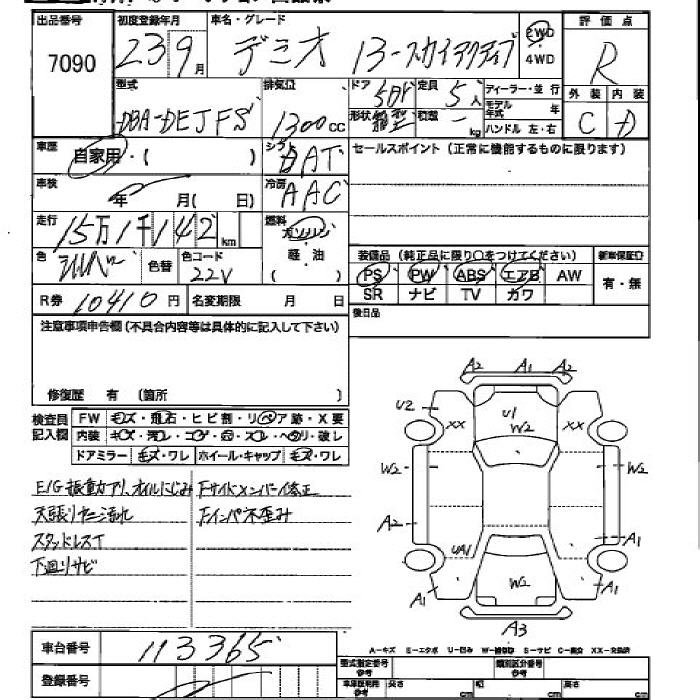 出品番号 初度登録年月 車名・グレード 評価点
7090 23 9月 デミオ 13-スカイアクティブ 2WD 4WD R
型式 排気量 ドア 5DR 定員 5人 ディーラー・並行 外装 内装
DBA-DEJFS 1300cc 形状 箱型 積載 - kg モデル年式 年 C D
ハンドル 左・右
車歴 自家用・( ) シフト DAT セールスポイント(正常に機能するものに限ります)
車検 年 月( 日) 冷房 AAC
走行 15万1千142km 燃料 ガソリン
軽・油
色 シルバー 色替 色コード 22V 装備品(純正品に限り○をつけてください) 新車保証書
PS PW ABS エアB AW 有・無
R券 10410円 名変期限 月 日 SR ナビ TV カワ
注意事項申告欄(不具合内容等は具体的に記入して下さい) 後日品
修復歴 有(箇所 )
検査員記入欄 FW キズ・飛石・ヒビ割・リペア跡・X要
内装 キズ・汚レ・コゲ・穴・スレ・ヘタリ・破レ
ドアミラー キズ・ワレ ホイール・キャップ キズ・ワレ
E/G振動アリ、オイルにじみ Fサイドメンバー修正
天張りヤニ汚れ Fインパネ歪み
スタッドレスT
下廻りサビ
A2 A1 A2
U2 XX U1 W2 XX
W2 W2
A2 A1
UA1
A1 W2 A1
A3
A-キズ E-エクボ U-凹み W-補修跡 S-サビ C-腐食 XX-交換済
車台番号 113365 型式指定番号 参考 類別区分番号 参考
登録番号 車体証明用 参考 長さ cm 幅 cm 高さ cm